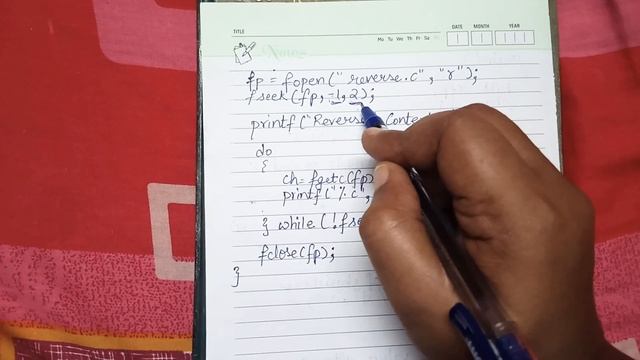 TITLE
DATE MONTH YEAR
Mo Tu We Th Fr Sa
Notes
fp = fopen("reverse.c", "r");
fseek(fp, -1, 2);
printf("Reverse
do
{
ch= fgetc(fp)
printf("%c",
} while (!fse
fclose(fp);
}